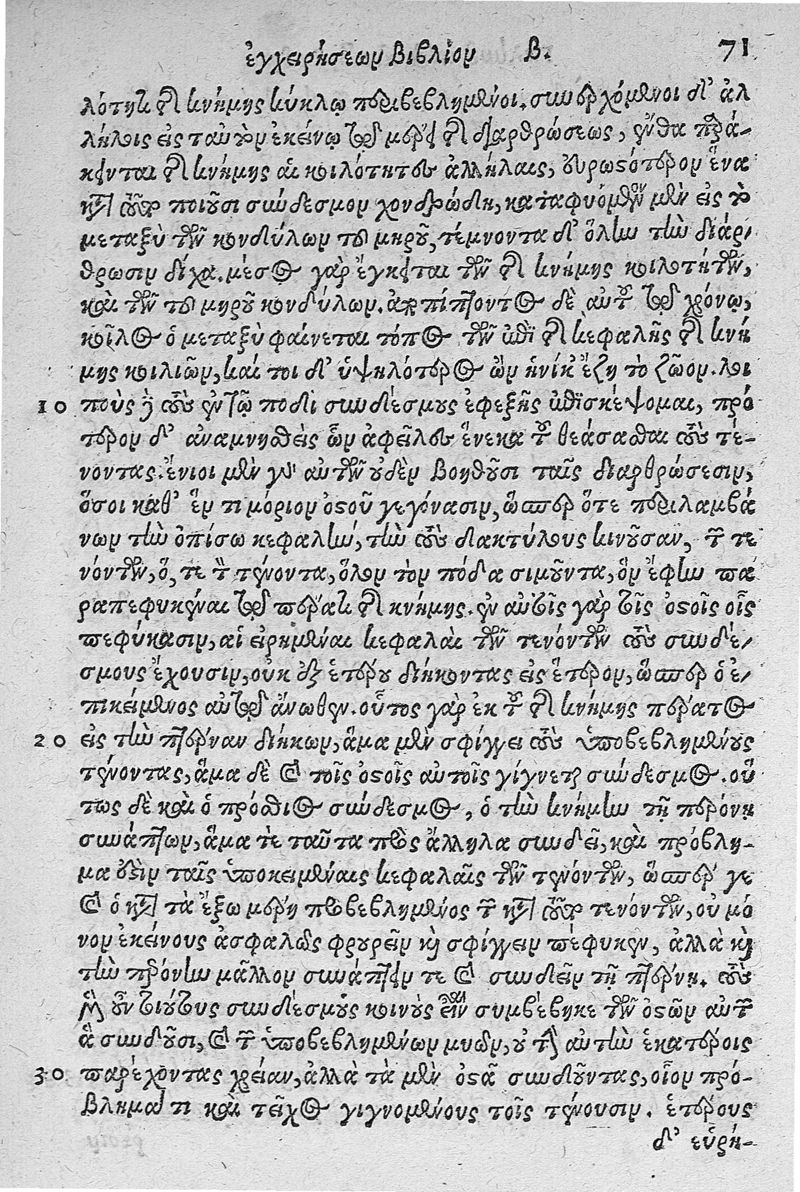 ἐγχειρήσεων βιβλίον Β. 71
λότητι τῆς κνήμης κύκλῳ περιβεβλημένοι. συνερχόμενοι δ' ἀλ
λήλοις εἰς ταυτὸν ἐκείνῳ τῷ μέρει τῆς διαρθρώσεως, ἔνθα παρά-
κεινται τῆς κνήμης αἱ κοιλότητες ἀλλήλαις, εὐρωστότερον ἕνα
κατὰ τοῦτον ποιοῦσι σύνδεσμον χονδρώδη, καταφυόμενον μὲν εἰς τὸ
μεταξὺ τῶν κονδύλων τοῦ μηροῦ, τέμνοντα δ' ὅλην τὴν διάρ-
θρωσιν δίχα. μέσος γὰρ ἔγκειται τῶν τῆς κνήμης κοιλοτήτων,
καὶ τῶν τοῦ μηροῦ κονδύλων. ἐκπίπτοντος δὲ αὐτοῦ τῷ χρόνῳ,
κοῖλος ὁ μεταξὺ φαίνεται τόπος τῶν ἐπὶ τῆς κεφαλῆς τῆς κνή
μης κοιλιῶν, καί τοι δ' ὑψηλότερος ὢν ἡνίκ' ἔζη τὸ ζῶον. λοι
10 ποὺς δὲ τοὺς ἐν τῷ ποδὶ συνδέσμους ἐφεξῆς ἐπισκέψομαι, πρό
τερον δ' ἀναμνησθεὶς ὧν ἀφεῖλες ἕνεκα τοῦ θεάσασθαι τοὺς τέ-
νοντας. ἔνιοι μὲν γὰρ αὐτῶν οὐδὲν βοηθοῦσι ταῖς διαρθρώσεσιν,
ὅσοι καθ' ἕν τι μόριον ὀστοῦ γεγόνασιν, ὥσπερ ὅ τε περιλαμβά
νων τὴν ὀπίσω κεφαλὴν, τὴν τοὺς δακτύλους κινοῦσαν, τῶν τε
νόντων, ὅ, τε τὸν τένοντα, ὅλον τὸν πόδα σιμοῦντα, ὃν ἔφην πα
ραπεφυκέναι τῷ πέρατι τῆς κνήμης. ἐν αὐτοῖς γὰρ τοῖς ὀστοῖς οἷς
πεφύκασιν, αἱ εἰρημέναι κεφαλαὶ τῶν τενόντων τοὺς συνδέ-
σμους ἔχουσιν, οὐκ ἐξ ἑτέρου διήκοντας εἰς ἕτερον, ὥσπερ ὁ ἐ-
πικείμενος αὐτῷ ἄνωθεν. οὗτος γὰρ ἐκ τοῦ τῆς κνήμης πέρατος
20 εἰς τὴν πτέρναν διήκων, ἅμα μὲν σφίγγει τοὺς ὑποβεβλημένους
τένοντας, ἅμα δὲ καὶ τοῖς ὀστοῖς αὐτοῖς γίγνεται σύνδεσμος. οὕ
τως δὲ καὶ ὁ πρόσθιος σύνδεσμος, ὁ τὴν κνήμην τῇ περόνῃ
συνάπτων, ἅμα τε ταῦτα πρὸς ἄλληλα συνδεῖ, καὶ πρόβλη-
μα ἐστὶν ταῖς ὑποκειμέναις κεφαλαῖς τῶν τενόντων, ὥσπερ γε
καὶ ὁ κατὰ τὰ ἔξω μέρη προβεβλημένος τῶν κατὰ τοῦτον τενόντων, οὐ μό
νον ἐκείνους ἀσφαλῶς φρουρεῖν καὶ σφίγγειν πέφυκεν, ἀλλὰ καὶ
τὴν περόνην μᾶλλον συνάπτειν τε καὶ συνδεῖν τῇ πτέρνῃ. τοὺς
μὲν οὖν τοιούτους συνδέσμους κοινοὺς εἶναι συμβέβηκε τῶν ὀστῶν αὐτῶν
ἃ συνδοῦσι, καὶ τῶν ὑποβεβλημένων μυῶν, οὐ τὴν αὐτὴν ἑκατέροις
30 παρέχοντας χρείαν, ἀλλὰ τὰ μὲν ὀστᾶ συνδοῦντας, οἷον πρό-
βλημα τι καὶ τεῖχος γιγνομένους τοῖς τένουσιν. ἑτέρους
δ' εὑρή-